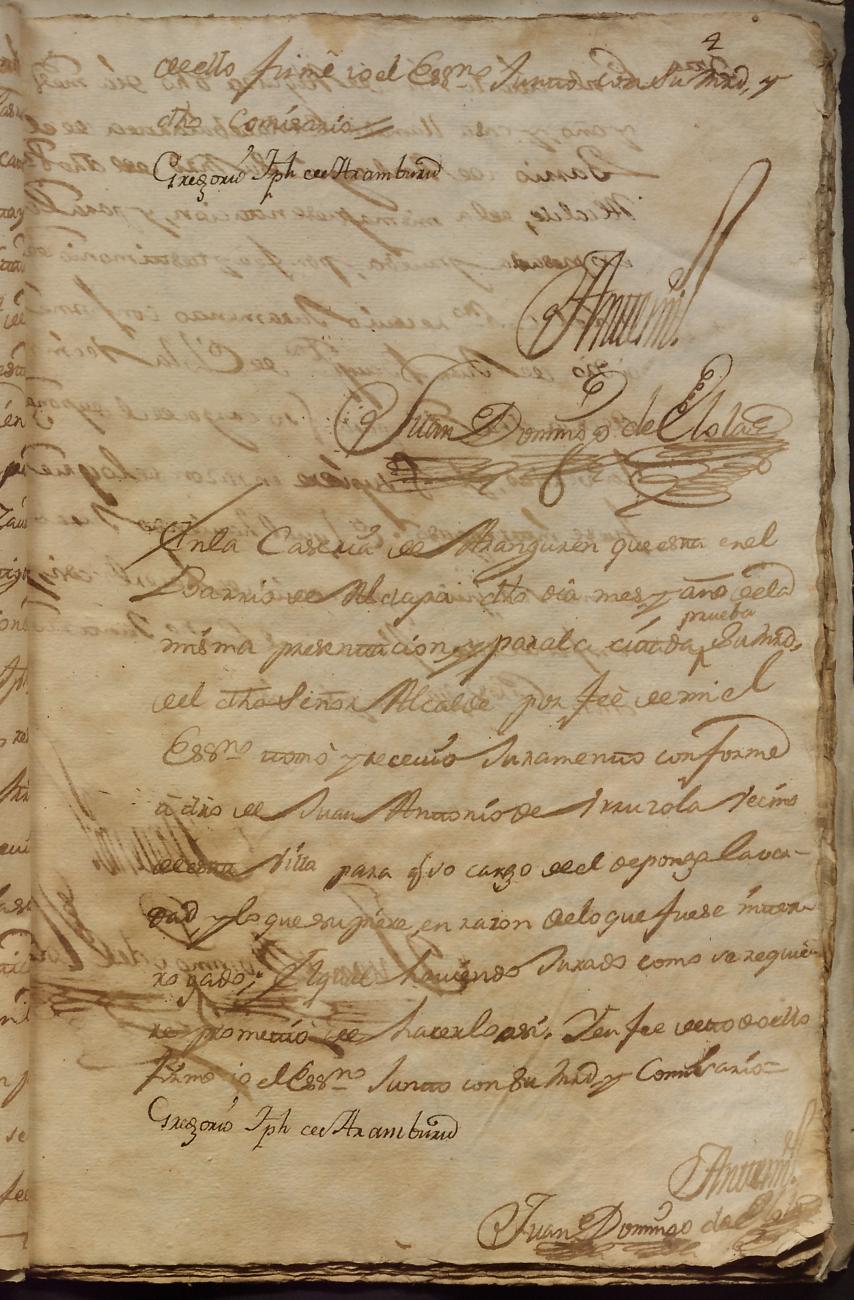 4
de ello firmè io el Essno Junto con su Mrd, y
dho Comisario
Gregorio Jph de Aramburu
Antemi
Juan Domingo de Elola
En la Caseria de Aranguren que esta en el
Barrio de Alclapa dho dia mes y año de la
prueba
misma presentacion, y para la citada, su Mrd,
del dho Señor Alcalde por feè de mi el
Essno tomó y recevio Juramento conforme
a dro de Juan Antonio de Yrruzola Vecino
de esta Villa para q̃ vso cargo de el deponga la ver-
dad y lo que supiere, en razon de lo que fuese inter-
rogado; y el que haviendo Jurado como se requie-
re prometió de hacerlo asi. Y en fee de todo ello
firmo io el Essno Junto con su Mrd y Comisario=
Gregorio Jph de Aramburu
Antemi
Juan Domingo de Elola